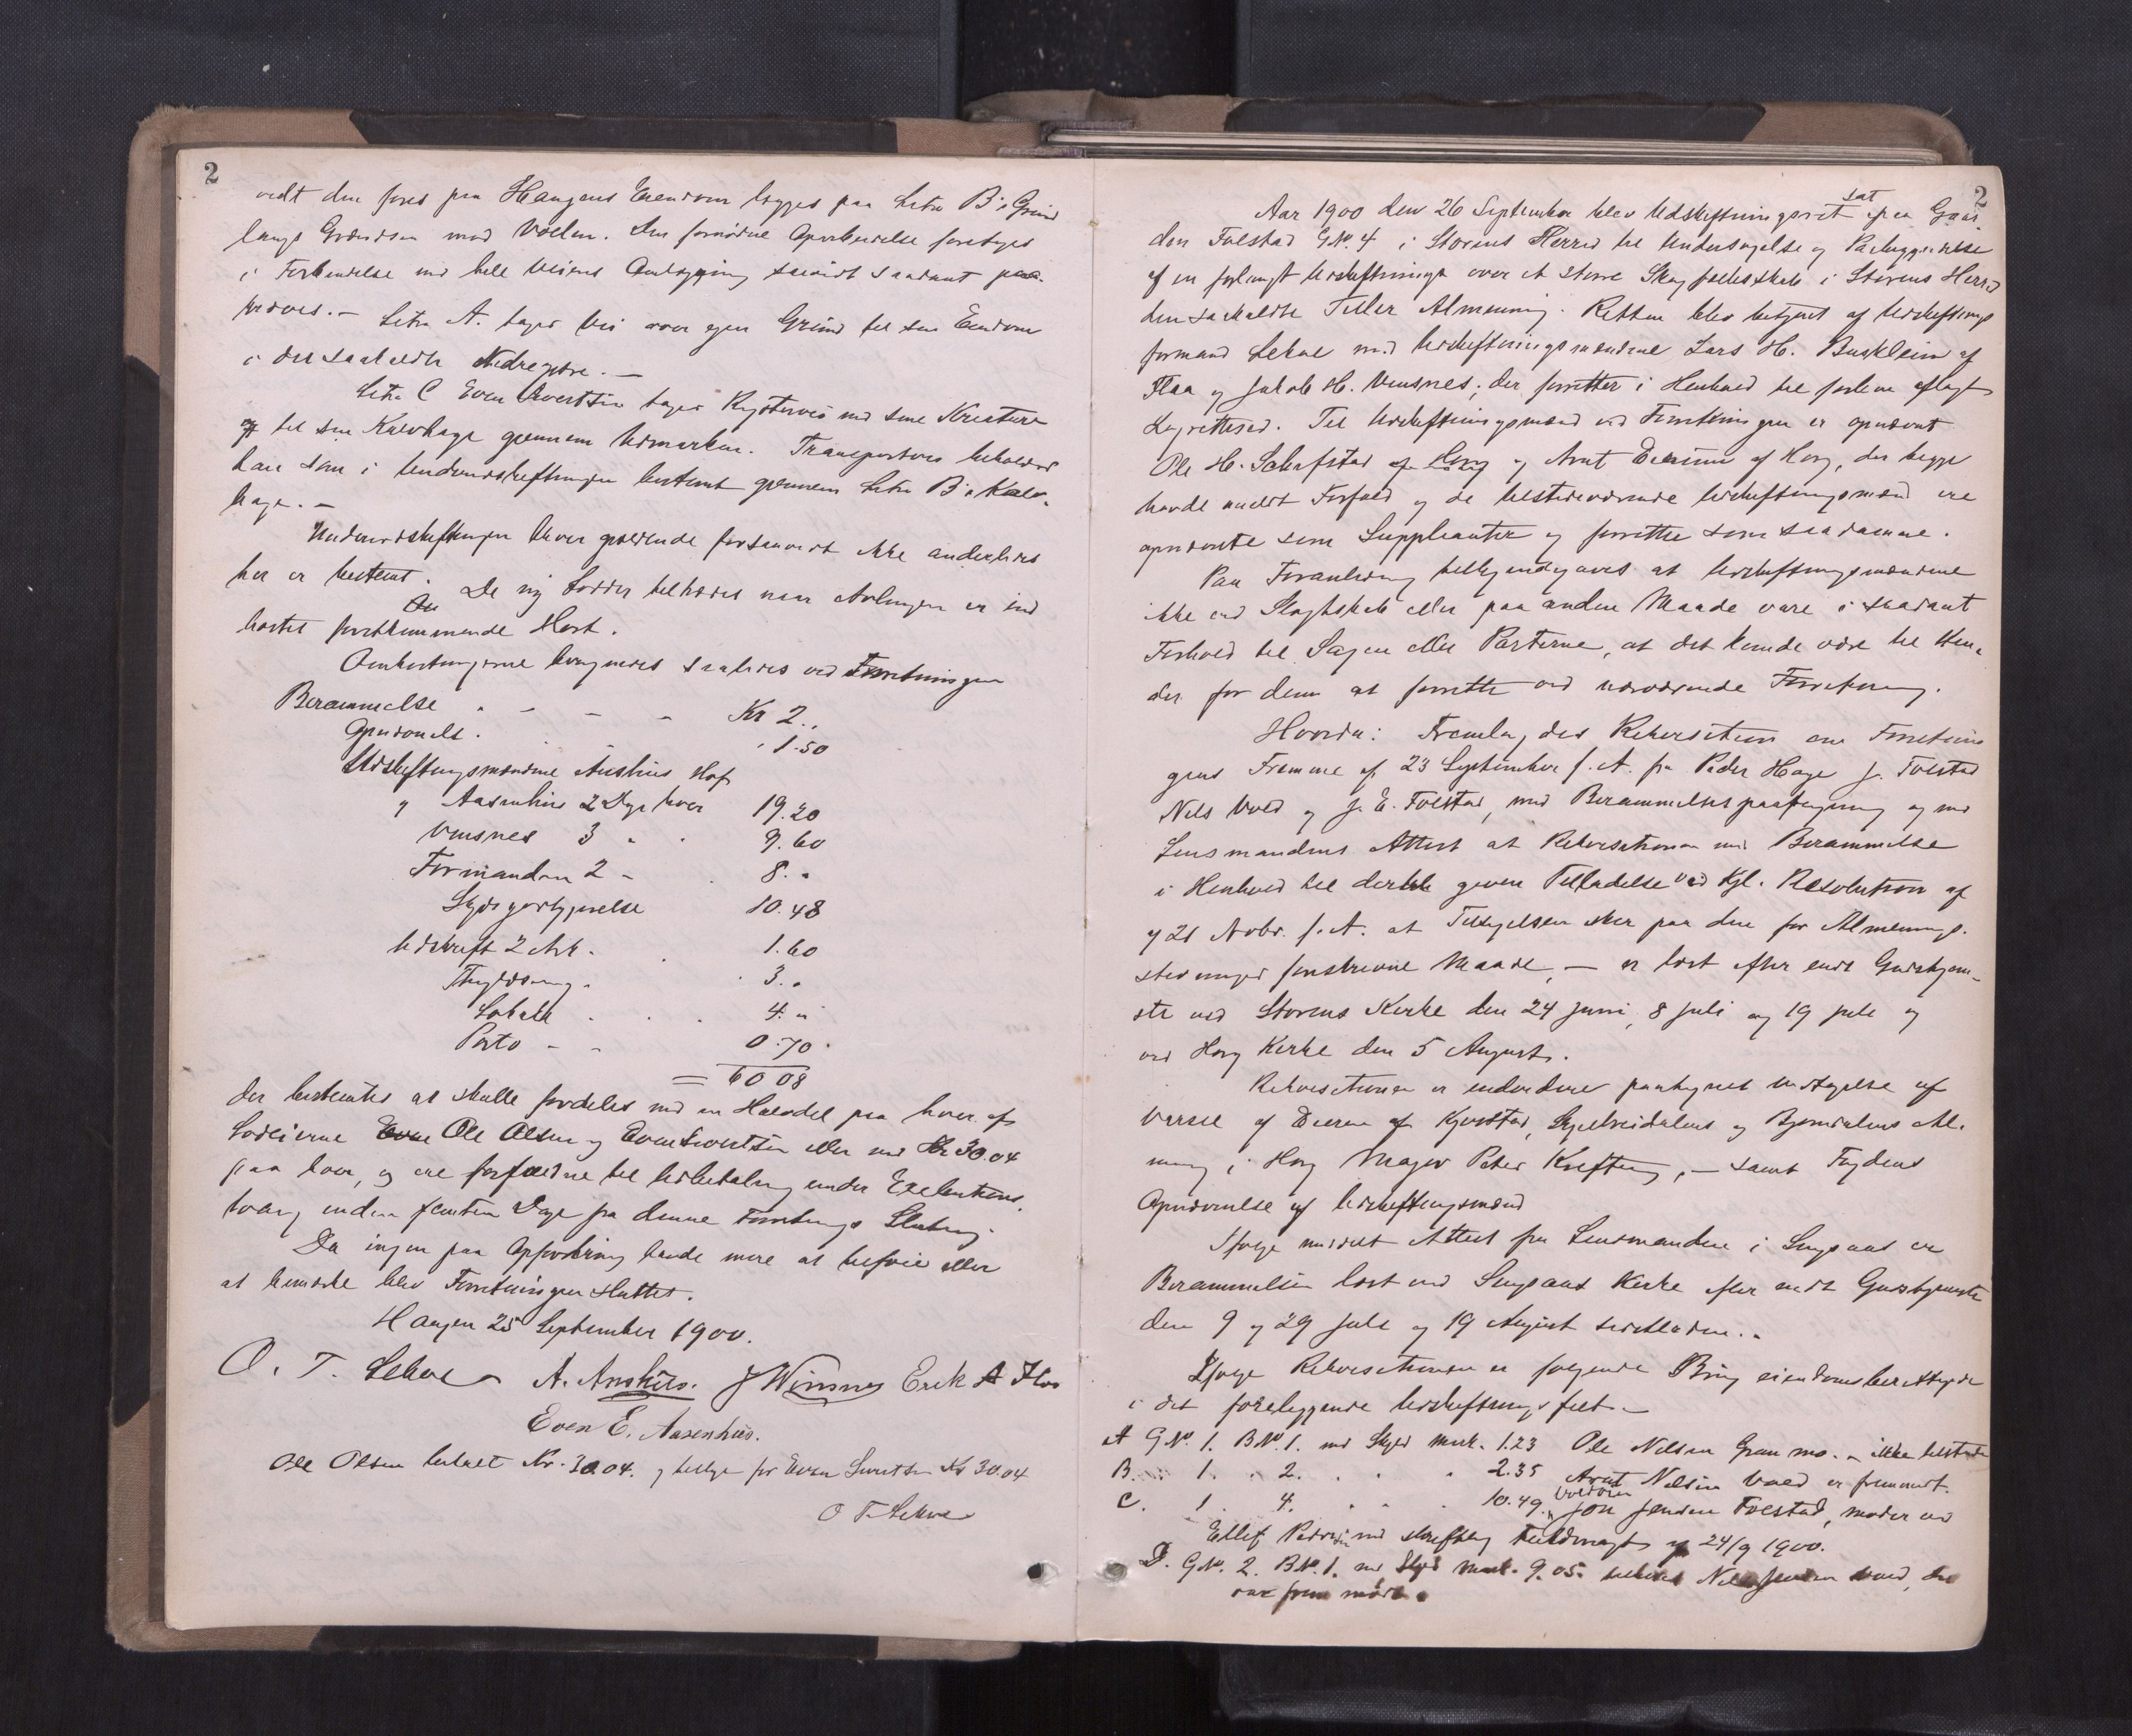 2
vidt den föres paa Haugens Eiendom lægges paa Litra B's Grund
langs Grændsen mod Volden. Den fornødne Oparbeidelse foretages
i Forbindelse med hele Veiens Omlægning saavidt saadant paa-
kræves. — Litra A. tager Vei over egen Grund til sin Eiendom
i den saakaldte Nedregjøre. —
Litra C Even Evertsen tager Kryøtervei med sine Kreature
til sin Kalvhage gjennem Udmarken. Transportvei beholder
han som i Undenudskiftningen bestemt gjennem Litra B's Kalv-
hage. —
Undenudskiftningen bliver gjældende forsaavidt ikke anderledes
her er bestemt. De ny Lodder tiltrædes naar Avlingen er ind
høstet förstkommende Høst.
Omkostningerne beregnedes saaledes ved Forretningen
Berammelse - - - - Kr 2..
Opnævnelse . . . 1.50
Udskiftningsmændene Anshus Hof
og Aasenhus 2 Dage hver 19.20
Vinsnes 3 " . 9.60
Formanden 2 - . 8. "
Skydsgodtgjørelse 10.48
Udskrift 2 Ark . . 1.60
Thinglæsning . . 3. "
Lokale . . . 4. "
Porto - - 0.70.
= 60 08
der bestemtes at skulle fordeles med en Halvdel paa hver af
Lodeierne Ole Olsen og Even Sivertsen eller med Kr 30.04
paa hver, og ere forfaldne til Udbetaling under Exekutions-
tvang inden femten Dage fra denne Forretnings Slutning.
Da ingen paa Opfordring havde mere at tilføie eller
at bemærke blev Forretningen sluttet.
Haugen 25 September 1900.
O. T. Lehne A. Anshus. J Winsnes Erik A Hov
Even E. Aasenhus.
Ole Olsen betalt Kr. 30.04. og tillige for Even Sivertsen Kr 30.04
O T. Lehne
2
sat
Aar 1900 den 26 September blev Udskiftningsret paa Gaar-
den Folstad GNo. 4 i Størens Herred til Undersøgelse og Paabegyndelse
af en forlangt Udskiftning over et større Skogfælleskab i Størens Herred
den saakaldte Teller Almenning. Retten blev betjent af Udskiftnings
formand Lehne med Udskiftningsmændene Lars H. Buskleim af
Flaa og Jakob H. Vinsnes, der forretter i Henhold til forhen aflagt
Lagrettesed. Til Udskiftningsmænd ved Forretningen er opnævnt
Ole H. Solafstad af Horg og Arnt Evenmo af Horg, der begge
havde meldt Forfald og de tilstedeværende Udskiftningsmænd ere
opnævnte som Suppleanter og forretter som saadanne.
Paa Foranledning tilkjendegaves at Udskiftningsmændene
ikke ved Slægtskab eller paa anden Maade vare i saadant
Forhold til Sagen eller Parterne, at det kunde være til Hin-
der for dem at forrette ved nærværende Forretning.
Hvorda: Fremlagdes Rekvisition om Forretnin
gens Fremme af 23 September f. A. fra Peder Hage J. Folstad
Nils Vold og J. E. Folstad, med Berammelsespaategning og med
Lensmandens Attest at Rekvisitionen med Berammelse
i Henhold til dertil given Tilladelse ved Kgl. Resolution af
og 21 Novbr. f. A. at Tilsigelsen sker paa den for Almennings-
stevninger foreskrevne Maade, — er læst efter endt Gudstjene-
ste ved Størens Kirke den 24 Juni, 8 Juli og 19 Juli og
ved Horg Kirke den 5 August.
Rekvisitionen er endvidere paategnet Vedtagelse af
Varsel af Eieren af Kjørstad, Skjelbreidalens og Bjørndalens Al-
ning i Horg Major Peter Krefting, — samt Fogdens
Opnævnelse af Udskiftningsmænd
Ifølge meddelt Attest fra Lensmanden i Singsaas er
Berammelsen læst ved Singsaas Kirke efter endt Gudstjeneste
den 9 og 29 Juli og 19 August sidstleden. .
Ifølge Rekvisitionen er følgende Brug eiendomsberettigede
i det foreliggende Udskiftningsfelt. —
A GNo. 1. BNo. 1. med Skyld Mark. 1.23 Ole Nilsen Granmo. - ikke tilstede
B. 1. " 2. . . . 2.35 Arnt Nilsen Vold er fremmødt.
C. 1. 4. . . . 10.49. Jon Jensen Folstad, møder ved
Ellef Pedersen med skriftlig Fuldmagt af 24/9 1900.
D. GNo. 2. BNo. 1. med Skyld Mark. 9.05. tilhører Nils Jensen Vold, der
var frem mødt.